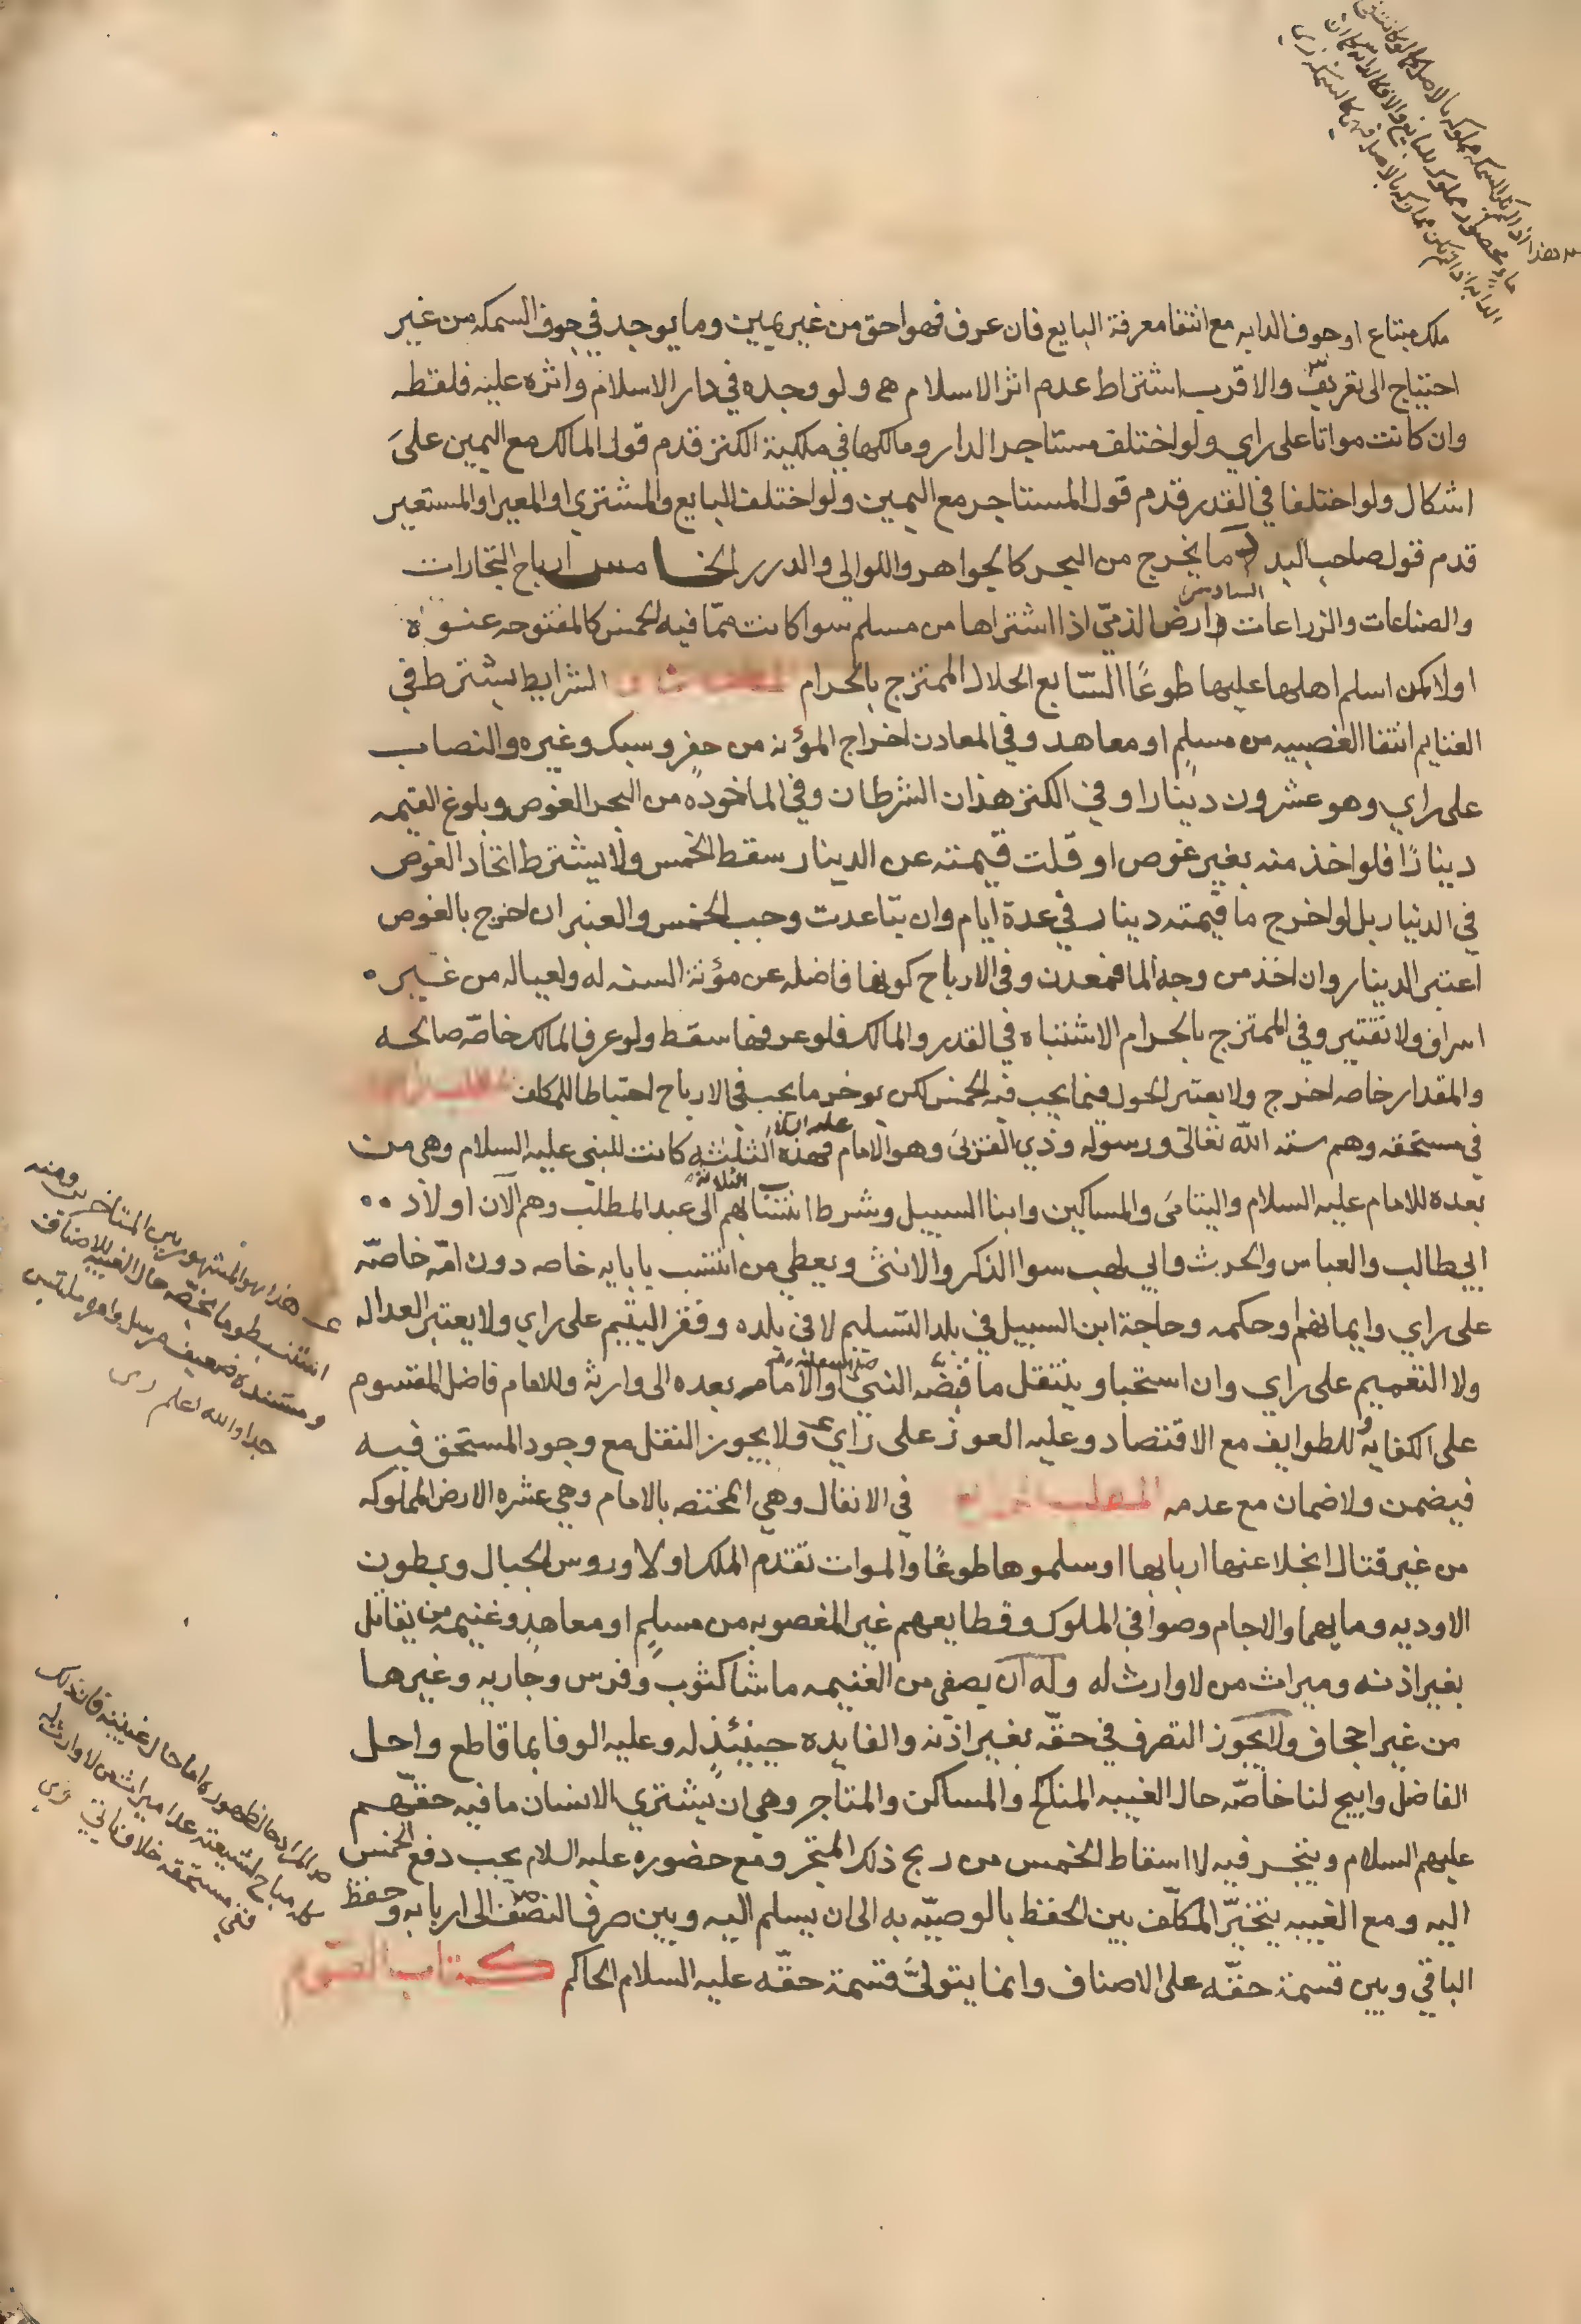 ملك مبتاع او جوف الدابه مع انتفا معرفة البايع فان عرف فهو احق من غير يمين وما يوجد في جوف السمكه من غير
احتياج الى تعريف والاقرب اشتراط عدم اثر الاسلام ولو وجده في دار الاسلام واثره عليه فلقطه
وان كانت مواتا على راي ولو اختلف مستاجر الدار ومالكها في ملكية الكنز قدم قول المالك مع اليمين على
اشكال ولو اختلفا في القدر قدم قول المستاجر مع اليمين ولو اختلف البايع والمشتري او المعير او المستعير
قدم قول صاحب اليد ما يخرج من البحر كالجواهر واللوالي والدرر الخامس ارباح التجارات
والصناعات والزراعات السادس وارض الذمّي اذا اشتراها من مسلم سوا كانت ممّا فيه الخمس كالمفتوحه عنوه
اولا كمن اسلم اهلها عليها طوعًا السّابع الحلال الممتزج بالحرام المطلب الثاني الشرايط يشترط في
الغنايم انتفا الغصبيه من مسلم او معاهد وفي المعادن اخراج المؤنه من حفر وسبك وغيره والنصاب
على راي وهو عشرون دينارا وفي الكنز هذان الشرطان وفي الماخوذه من البحر الغوص وبلوغ القيمه
دينارًا فلو اخذ منه بغير غوص او قلت قيمته عن الدينار سقط الخمس ولا يشترط اتحاد الغوص
في الدينار بل لو اخرج ما قيمته دينار في عدة ايام وان تباعدت وجب الخمس والعنبر ان اخرج بالغوص
اعتبر الدينار وان اخذ من وجه الما فمعدن وفي الارباح كونها فاضله عن مؤنة السنه له ولعياله من غير
اسراف ولا تقتير وفي الممتزج بالحرام الاشتباه في القدر والمالك فلو عرفهما سقط ولو عرف المالك خاصّه صالحه
والمقدار خاصه اخرج ولا يعتبر الحول فيما يجب فيه الخمس لكن يوخر ما يجب في الارباح احتياطا للمكلف المطلب الثالث
في مستحقه وهم سته الله تعالى ورسوله وذي القربى وهو الامام عليه السلام فهذه الثلثه كانت للنبي عليه السلام وهي من
بعده للامام عليه السلام واليتامى والمساكين وابنا السبيل وشرط الثلاثة انتسابهم الى عبد المطلب وهم الآن اولاد
ابي طالب والعباس والحرث وابي لهب سوا الذكر والانثى ويعطي من انتسب بابايه خاصه دون امّه خاصّه
على راي وايمانهم او حكمه وحاجة ابن السبيل في بلد التسليم لا في بلده وفقر اليتيم على راي ولا يعتبر العداله
ولا التعميم على راي وان استحبا وينتقل ما قبضه النبي صلى الله عليه والامام بعده الى وارثه وللامام فاضل المقسوم
على الكفايه للطوايف مع الاقتصاد وعليه العوز على راي ولا يجوز النقل مع وجود المستحق فيه
فيضمن ولا ضمان مع عدمه المطلب الرابع في الانفال وهي المختصه بالامام وهي عشره الارض المملوكه
من غير قتال انجلا عنها اربابها او سلموها طوعًا والموات تقدم الملك اولا وروس الجبال وبطون
الاوديه وما بهما والاجام وصوافي الملوك وقطايعهم غير المغصوبه من مسلم او معاهد وغنيمه من يقاتل
بغير اذنه وميراث من لا وارث له وله ان يصفي من الغنيمه ما شا كثوب وفرس وجاريه وغيرها
من غير اجحاف ولا يجوز التصرف في حقّه بغير اذنه والفايده حينئذ له وعليه الوفا بما قاطع واحل
الفاضل وابيح لنا خاصّه حال الغيبه المناكح والمساكن والمتاجر وهي ان يشتري الانسان ما فيه حقّهم
عليهم السلام ويتجر فيه لا اسقاط الخمس من ربح ذلك المتجر ومع حضوره عليه السلام يجب دفع الخمس
اليه ومع الغيبه يتخيّر المكلّف بين الحفظ بالوصيّه به الى ان يسلم اليه وبين صرف النصف الى اربابه وحفظ
الباقي وبين قسمة حقّه على الاصناف وانما يتولّى قسمة حقّه عليه السلام الحاكم كتاب الصّوم
هذا هو المشهور بين المتاخرين ومنه
استنبط وما يخصّه حال الغيبه للاصناف
ومستنده ضعيف مرسل
جدا والله اعلم
المراد حال ظهوره اما حال غيبته فان ذلك
كله مباح لشيعته عدا ميراث من لا وارث له
ففي مستحقه خلاف ياتي